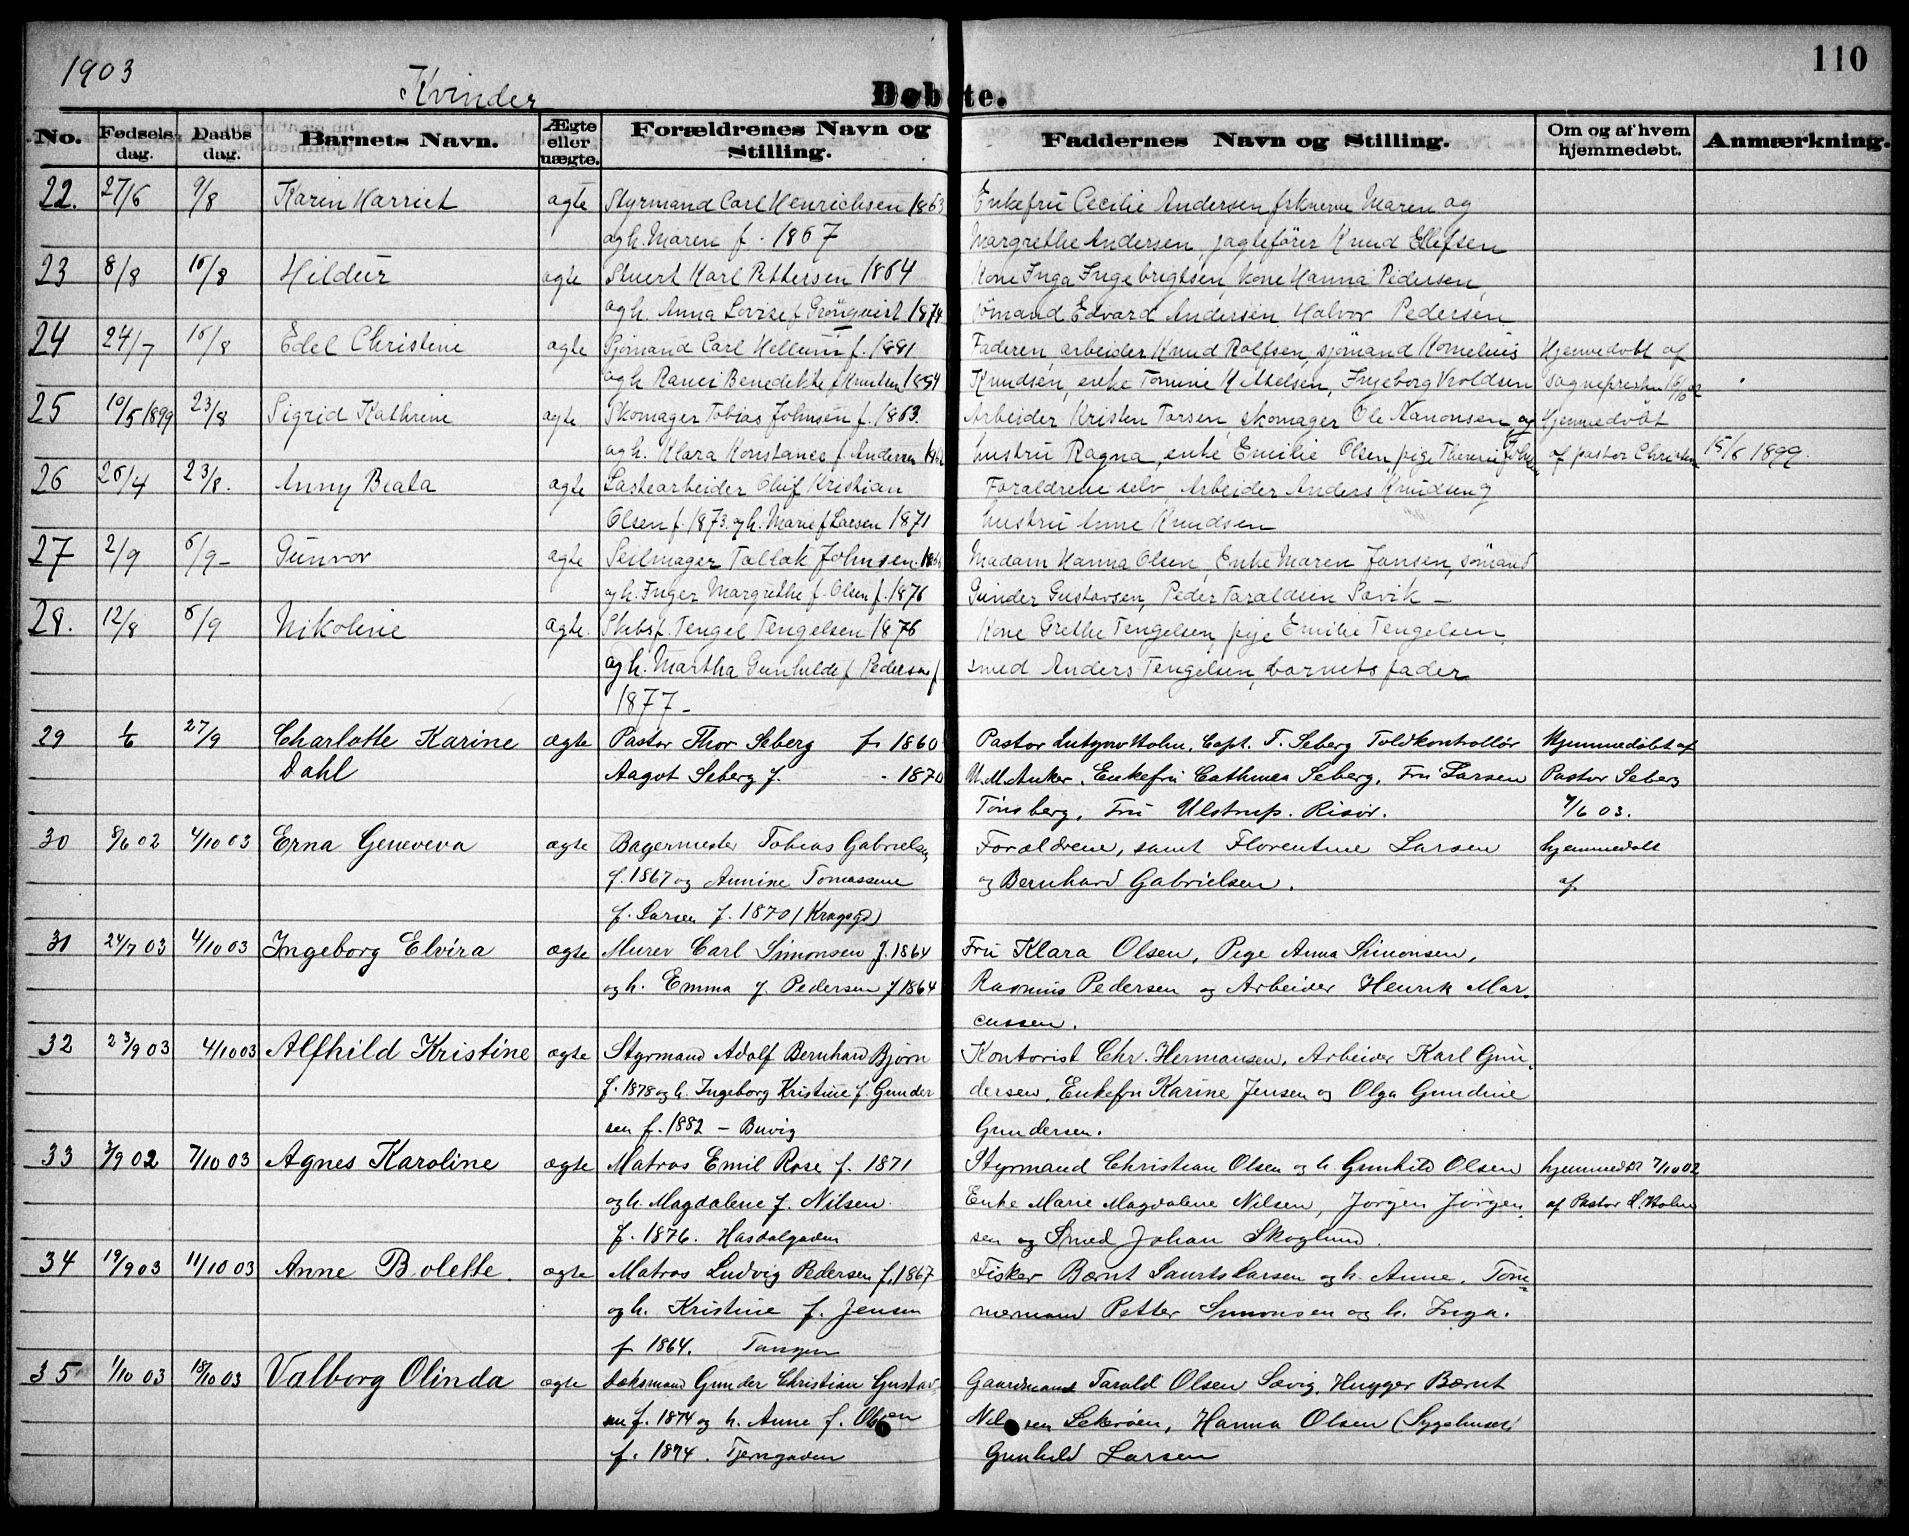 1903
Kvinder
Døbte.
110
No. Fødsels dag. Daabs dag. Barnets Navn. Ægte eller uægte. Forældrenes Navn og Stilling. Faddernes Navn og Stilling. Om og af hvem hjemmedøbt. Anmærkning.
22. 27/6 9/8 Karin Harriet ægte Styrmand Carl Henrichsen 1863 Enkefru Cecilie Andersen Maren og
og h. Maren f. 1867 Margrethe Andersen, jagtefører Knud Ellefsen
23 8/8 16/8 Hildur ægte Stuert Karl Pettersen 1864 Kone Inga Ingebrigtsen, kone Hanna Pedersen,
og h. Anna Lovise f Grönqvist 1874 sømand Edvard Andersen Halvor Pedersen
24 24/7 16/8 Edel Christine ægte Sjömand Carl Hellum f. 1881 Faderen, arbeider Knud Rolfsen, sjömand Kornelius Hjemmedöbt af
og h. Benedikte f Knutsen Knudsen, enke Tomine K Axelsen, Ingeborg sognepresten
25 10/5 1899 23/8 Sigrid Kathrine ægte Skomager Tobias Johnsen f. 1863. Arbeider Kristen Tarsen, skomager Ole Nanonsen og Hjemmedöbt
og h. Klara Konstance f Andersen hustru Ragna, enke Emilie Olsen, pige af pastor 15/6 1899.
26 26/4 23/8. Anny Beata ægte Lastearbeider Oluf Kristian Forældrene selv, Arbeider Anders Knudsen og
Olsen f. 1873. og h. Marie f Larsen 1871 hustru Anne Knudsen
27 2/9 6/9 – Gunvor ægte Seilmager Tallak Johnsen Madam Hanna Olsen, Enke Maren Jansen, sømand
og h. Inger Margrethe f. Olsen f. 1876 Gunder Gustavsen, Peder Taraldsen Savik –
28. 12/8 6/9 Nikoline ægte. Tengel Tengelsen 1876 Kone Grethe Tengelsen, pige Emilie Tengelsen,
og h. Martha Gunhilde f Pedersen f. smed Anders Tengelsen, barnets fader
1877 –
29 1/6 27/9 Charlotte Karine ægte Pastor Thor Seberg f. 1860 Pastor Holm, Capt. T. Seberg Toldkontrollør Hjemmedøbt af
Dahl Aagot Seberg f. - 1870 Anker, Enkefru Cathinca Seberg, Fru Larsen Pastor Seberg
Tönsberg, Fru Ulstrup. Risør. 7/6 03.
30 8/6 02 4/10 03 Erna Geneveva ægte Bagermester Tobias Gabrielsen Forældrene, samt Florentine Larsen hjemmedøbt
f. 1867 og Annine Tomassene og Bernhard Gabrielsen. af
f. Larsen f. 1870 (Kragsgd)
31 24/7 03 4/10 03 Ingeborg Elvira ægte Murer Carl Simonsen f. 1864 Fru Klara Olsen, Pige Anna Simonsen,
og h. Emma f. Pedersen f 1864 Rasmus Pedersen og Arbeider Henrik Mar-
cussen.
32 23/9 03 4/10 03 Alfhild Kristine ægte Styrmand Adolf Bernhard Bjørn Kontorist Chr. Hermansen, Arbeider Karl Gun-
f. 1878 og h. Ingeborg Kristine f. Gunder dersen, Enkefru Karine Jensen og Olga Gundine
sen f. 1882 – Buvig Gundersen.
33 3/9 02 7/10 03 Agnes Karoline ægte Matros Emil Rose f. 1871 Styrmand Christian Olsen og h. Gunhild Olsen hjemmedøbt 7/10 02
og h. Magdalene f. Nilsen Enke Marie Magdalene Nilsen, Jørgen Jörgen- af Pastor L. Holm
f. 1876. Hasdalgaden sen og Smed Johan Skoglund.
34 19/9 03 11/10 03 Anne Bolette. ægte Matros Ludvig Pedersen f. 1867 Fisker Bernt Larsen og h. Anne, Töm-
og h. Kristine f. Jensen mermand Petter Simonsen og h. Inga.
f 1864. Tangen
35 1/10 03 18/10 03 Valborg Olinda ægte Doksmand Gunder Christian Gustav Gaardmand Tarald Olsen Savig, Hugger Bernt
sen f. 1874 og h. Anne f. Olsen Nilsen Sekeröen, Hanna Olsen (Sygehuset)
f. 1874. Tjerngaden Gunhild Larsen